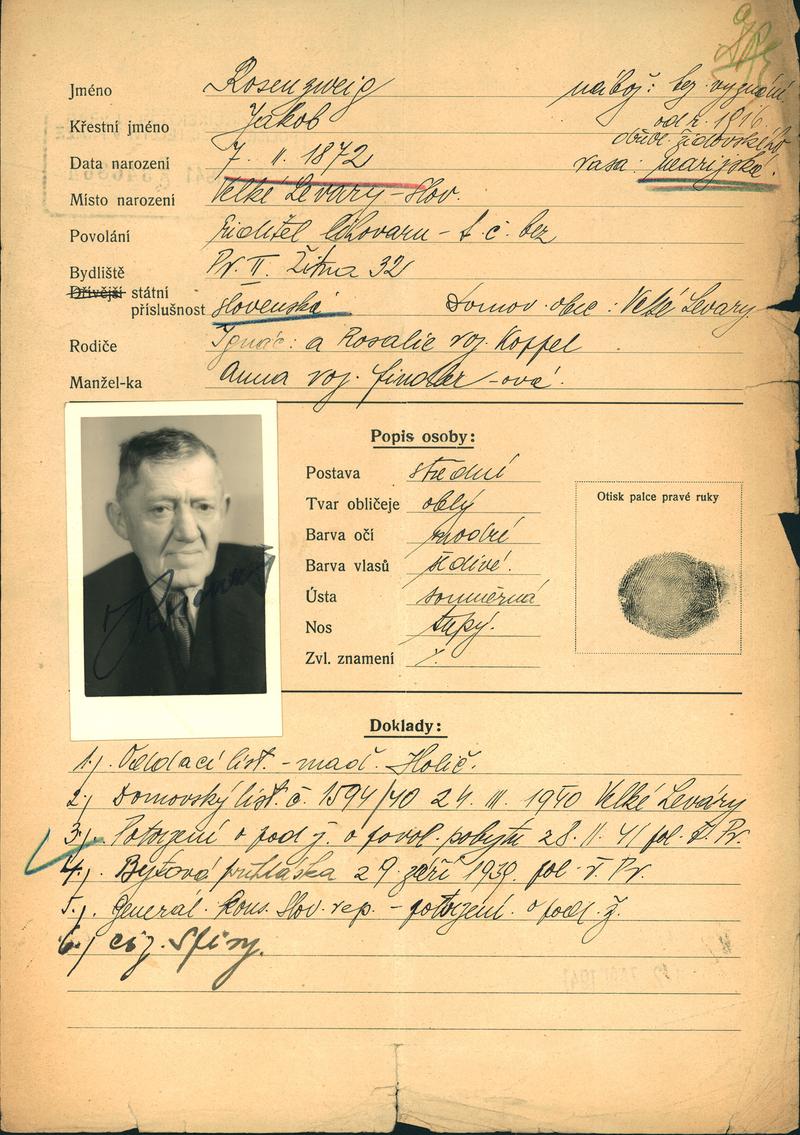 Jméno Rosenzweig nábož: bez vyznání
od r. 1916.
Křestní jméno Jakob dříve židovského
Data narození 7. II. 1872 rasa: nearijská.
Místo narození Velké Levary-Slov.
Povolání ředitel lihovaru - t. č. bez
Bydliště Pr. II. Žitna 32
Dřívější státní
příslušnost slovenská Domov. obec: Velké Levary.
Rodiče Ignác: a Rosalie roz. Koppel
Manžel-ka Anna roz. -ová.
Popis osoby:
Postava střední
Tvar obličeje oblý
Barva očí modré
Barva vlasů šedivé.
Ústa souměrná
Nos tupý.
Zvl. znamení ./.
Otisk palce pravé ruky
Doklady:
1.) Oddací list. - maď. Holíč.
2.) Domovský list. č. 1594/40 24. III. 1940 Velké Leváry
3.) Potvrzení o pod. ž. o povol. pobytu 28. II. 41 pol. ř. Pr.
4.) Bytová přihláška 29. září 1939. pol. ř. Pr.
5.) Generál. Kons. Slov. rep. - potvrzení. o pod. ž.
6.) ciz. spisy.